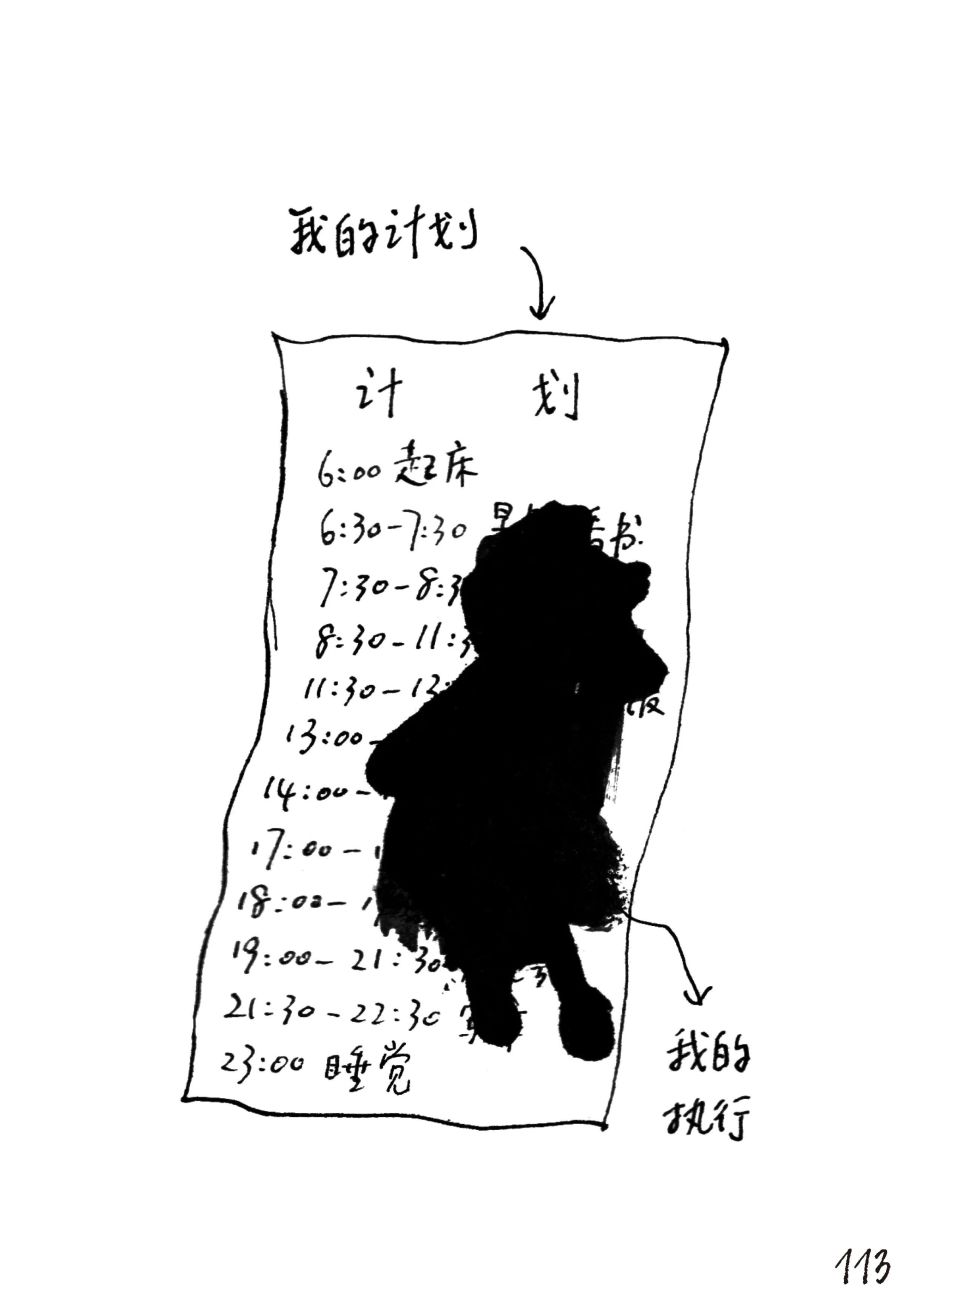 我的计划
计 划
6:00 起床
6:30-7:30 早 书
7:30-8:3
8:30-11:3
11:30-13: 饭
13:00-
14:00-
17:00-1
18:00-1
19:00-21:30
21:30-22:30
23:00 睡觉
我的
执行
113